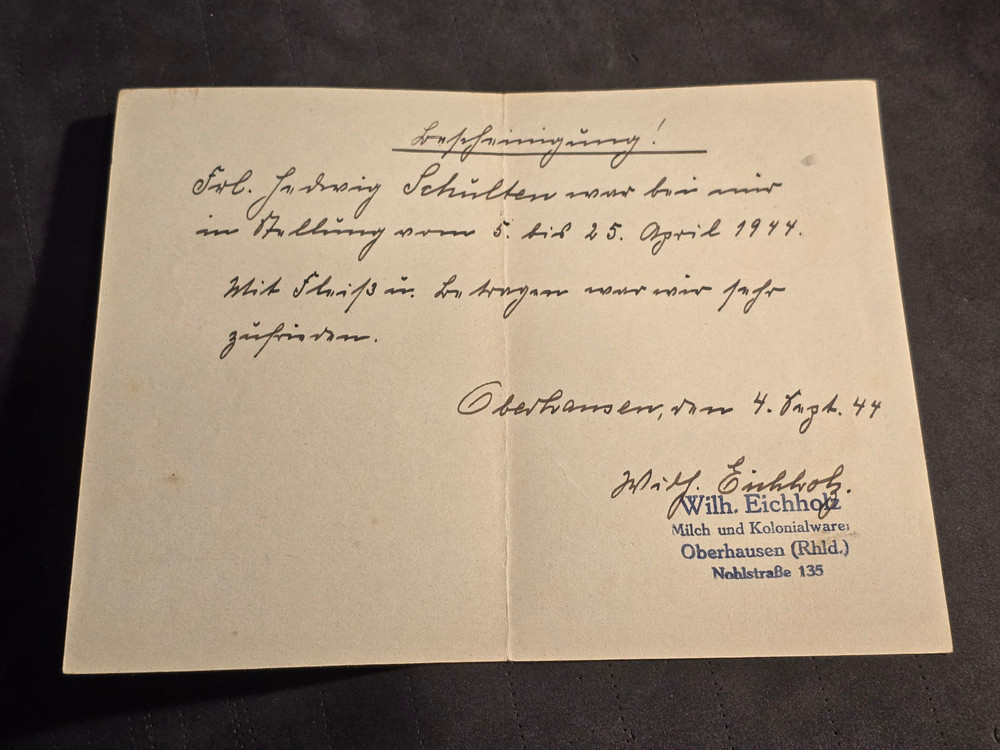 Bescheinigung!
Frl. Hedwig Schulten war bei mir
in Stellung vom 5. bis 25. April 1944.
Mit Fleiß u. Betragen war wir sehr
zufrieden.
Oberhausen, den 4. Sept. 44
Wilh. Eichholz.
Wilh. Eichholz
Milch und Kolonialwaren
Oberhausen (Rhld.)
Nohlstraße 135